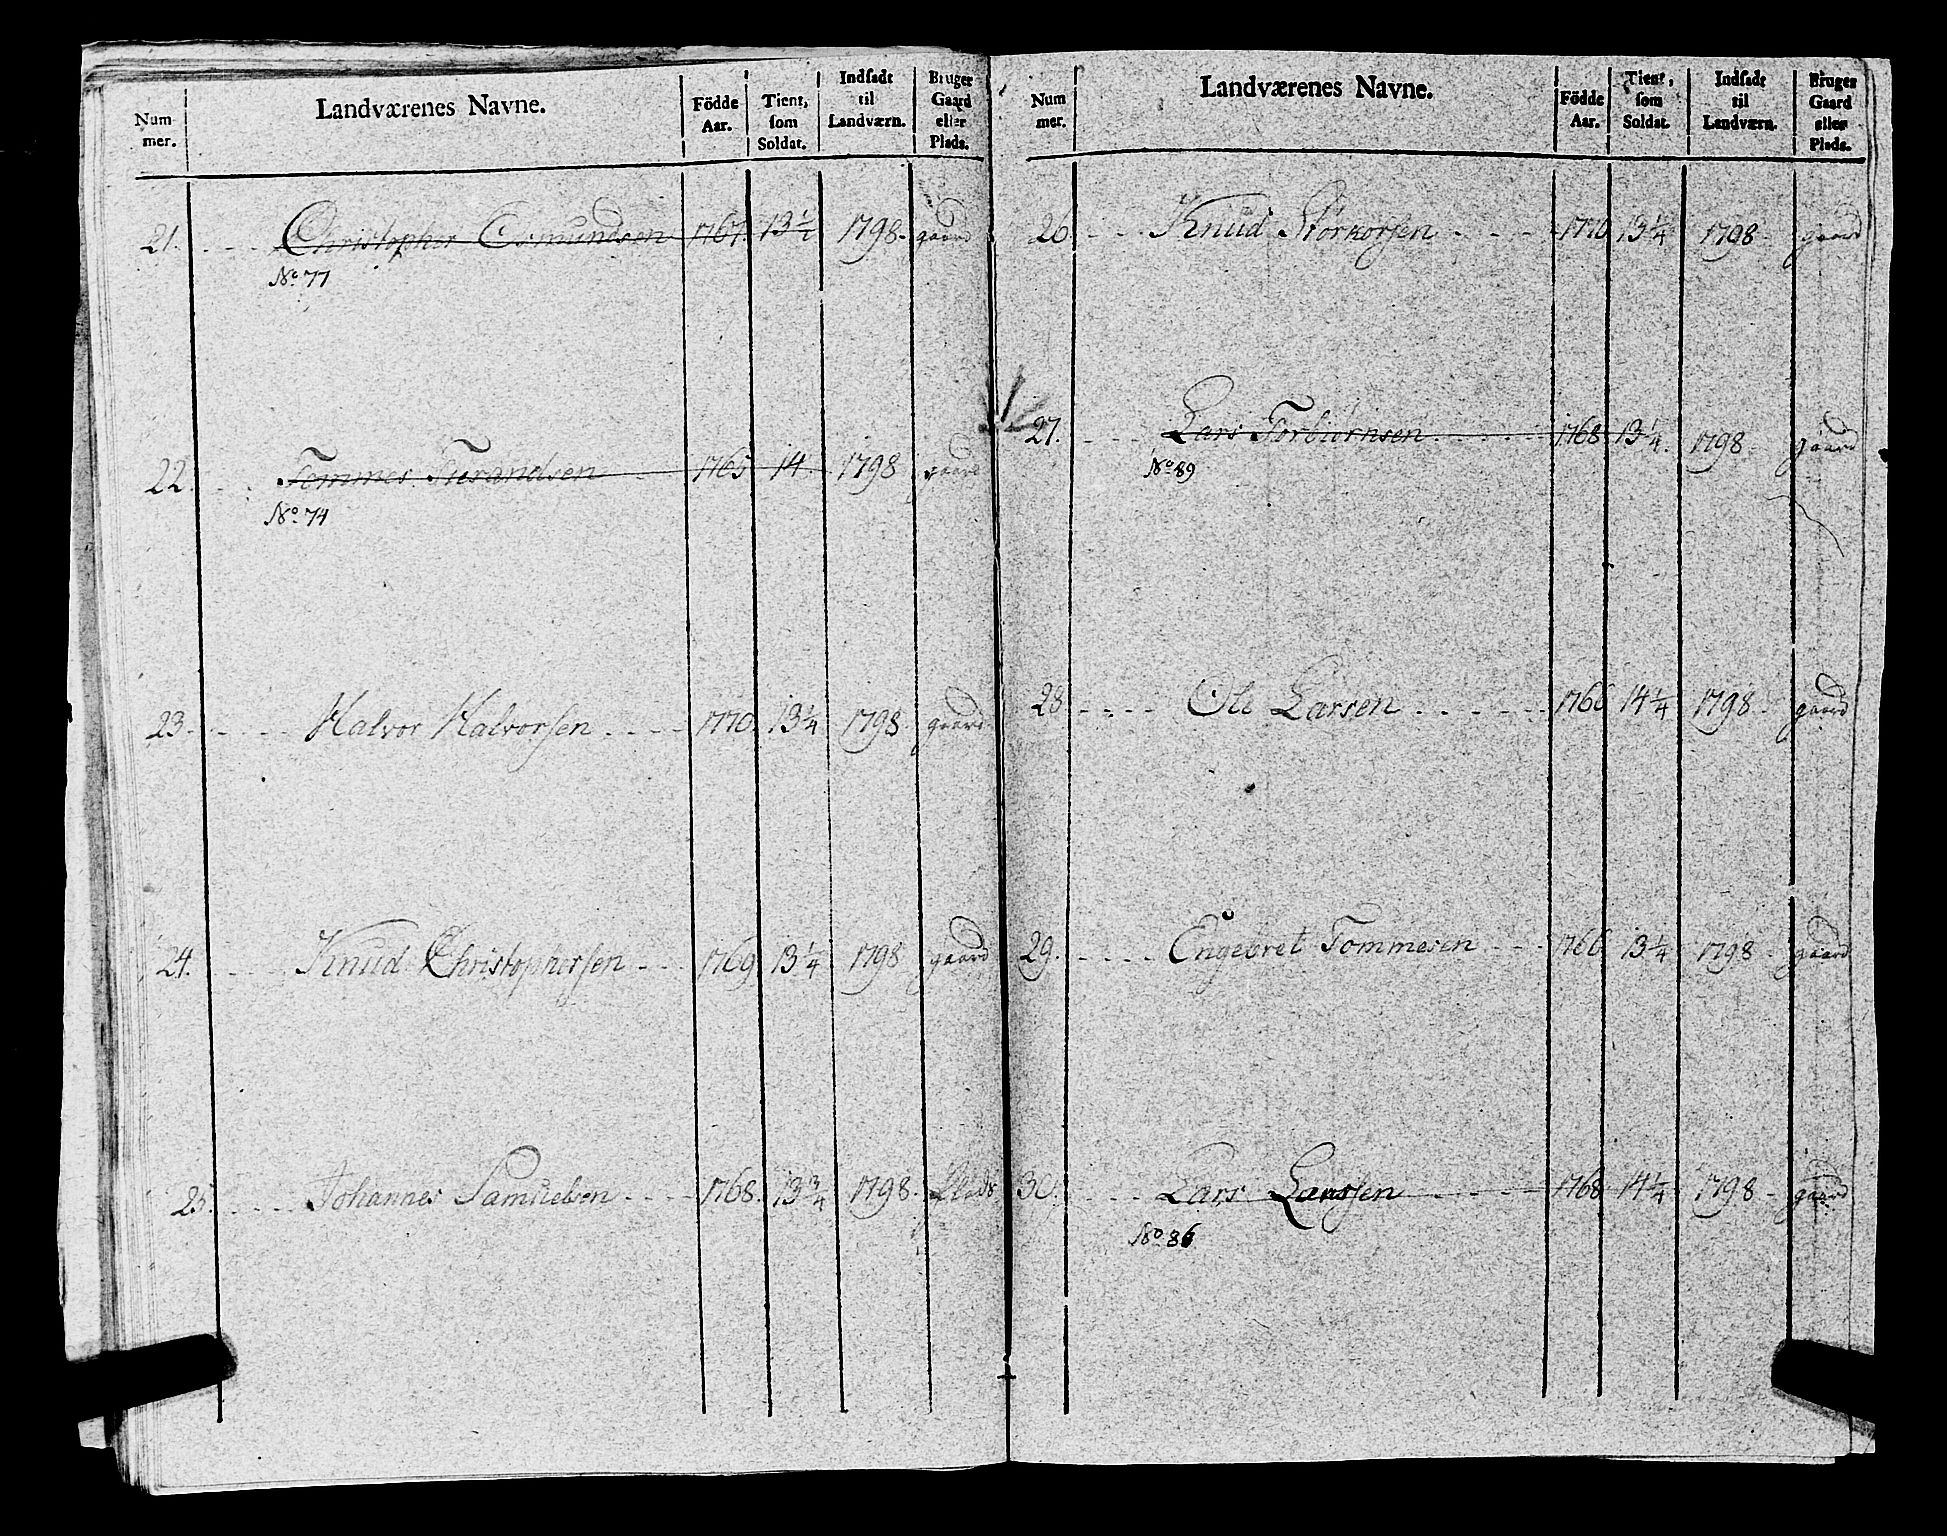 Num-
mer.
Landværenes Navne.
Födde
Aar.
Tient,
som
Soldat.
Indsadt
til
Landværn.
Bruger
Gaard
eller
Plads.
21. Christopher Osmundsen 1767. 13 1/2 1798. gaard
No. 77
22. Tommes 1765 14. 1798 gaard
No. 74
23. Halvor Halvorsen 1770. 13 1/4 1798. gaard
24. Knud Christophersen 1769 13 1/4 1798 gaard
25. Johannes Samuelsen 1768. 13 3/4 1798. Plads
Num
mer.
Landværenes Navne.
Födde
Aar.
Tient,
som
Soldat.
Indsadt
til
Landværn.
Bruger
Gaard
eller
Plads.
26 Knud 1770 13 1/4 1798 gaard
27. Lars Torbiørnsen 1768 13 1/4. 1798 gaard
No. 89
28 Ole Larsen 1766 14 1/4 1798 gaard
29. Engebret Tommesen 1766 13 1/4 1798 gaard
30. Lars Larssen 1768 14 1/4 1798 gaard
No. 86